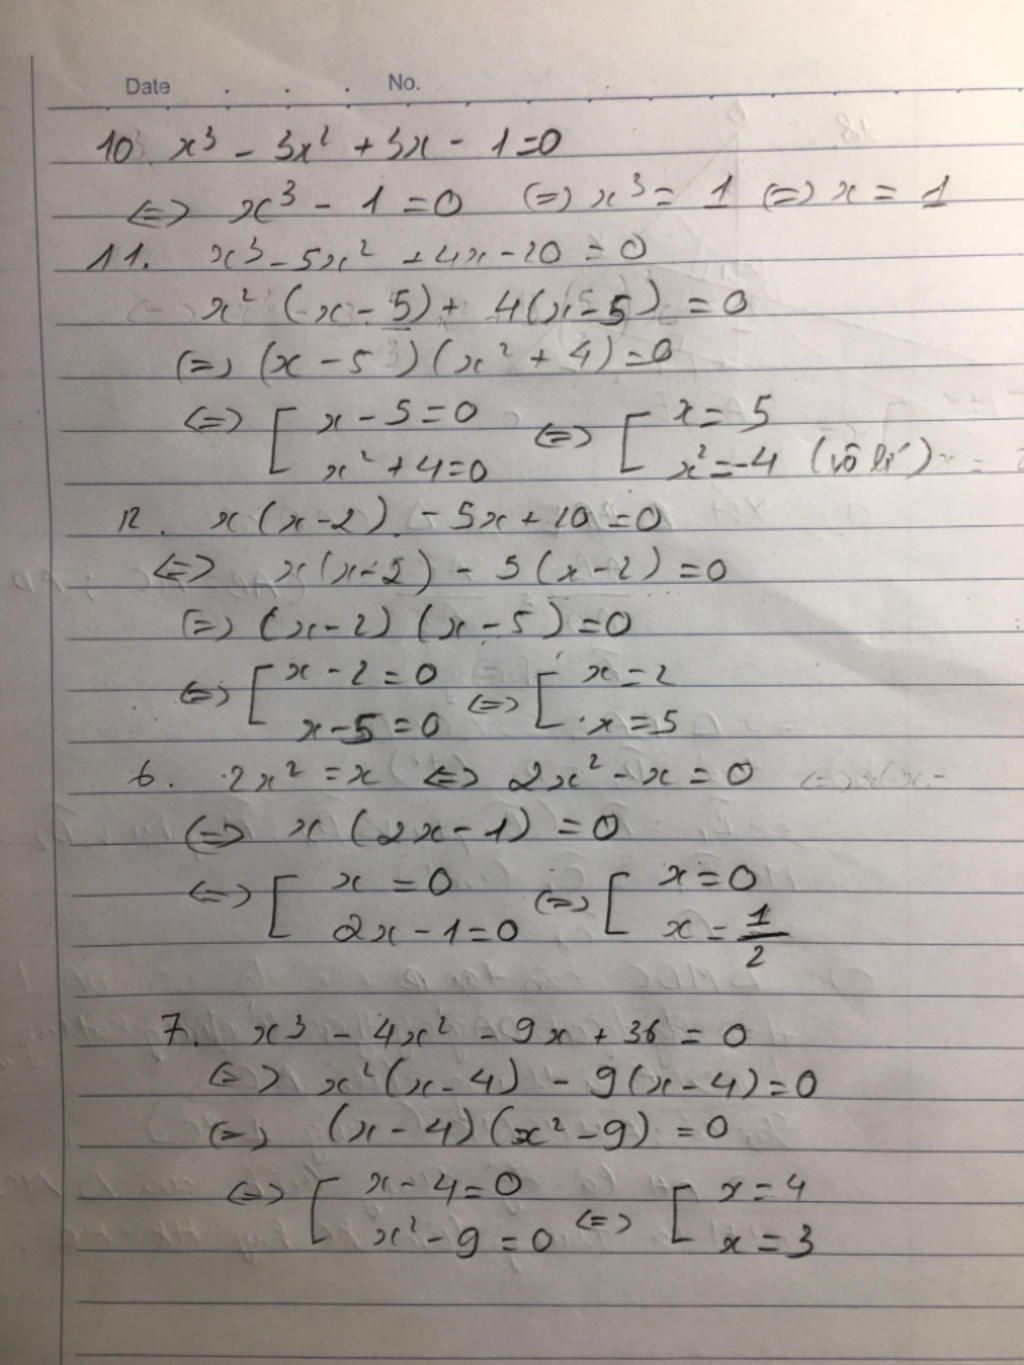 Date . . . No.
10. x³ - 3x² + 3x - 1 = 0
⇔ x³ - 1 = 0 ⇔ x³ = 1 ⇔ x = 1
11. x³ - 5x² + 4x - 20 = 0
x² (x - 5) + 4(x - 5) = 0
⇔ (x - 5)(x² + 4) = 0
⇔ [ x - 5 = 0 ⇔ [ x = 5
x² + 4 = 0 x² = -4 (vô lí)
12. x(x - 2) - 5x + 10 = 0
⇔ x(x - 2) - 5(x - 2) = 0
⇔ (x - 2)(x - 5) = 0
⇔ [ x - 2 = 0 ⇔ [ x = 2
x - 5 = 0 x = 5
6. 2x² = x ⇔ 2x² - x = 0
⇔ x (2x - 1) = 0
⇔ [ x = 0 ⇔ [ x = 0
2x - 1 = 0 x = 1/2
7. x³ - 4x² - 9x + 36 = 0
⇔ x²(x - 4) - 9(x - 4) = 0
⇔ (x - 4)(x² - 9) = 0
⇔ [ x - 4 = 0 ⇔ [ x = 4
x² - 9 = 0 x = 3